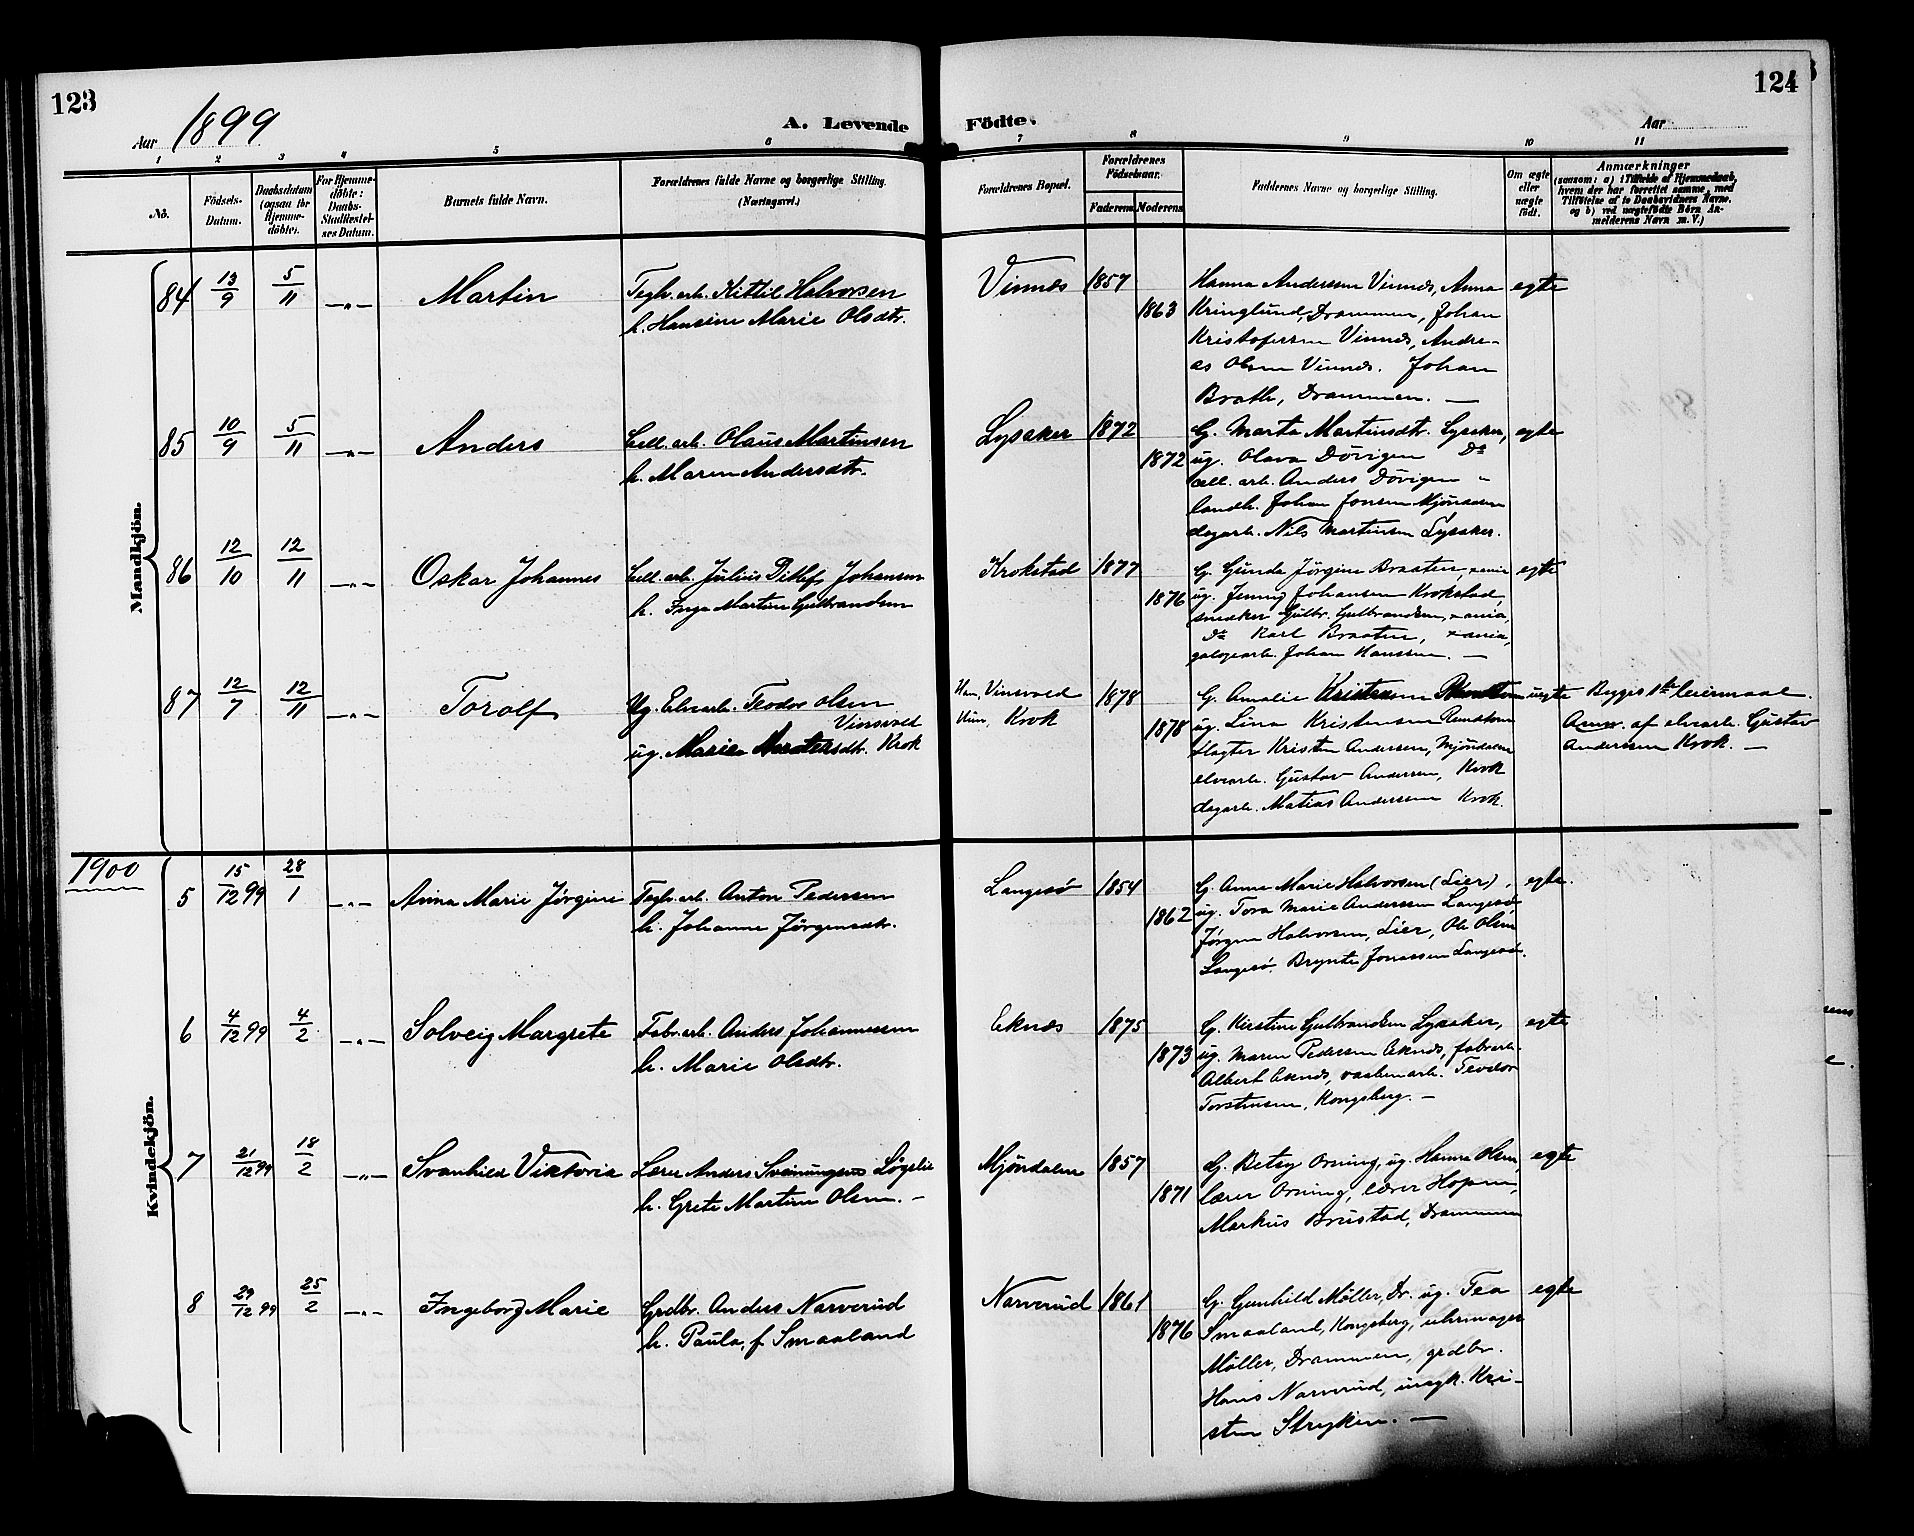 123
124
Aar 1899
A. Levende
Födte.
Aar
1
2
3
4
5
6
7
8
9
10
11
No.
Födsels-
Datum.
Daabsdatum
(ogsaa for
Hjemme-
döbte).
For Hjemme-
döbte:
Daabs-
Stadfæstel-
ses Datum.
Barnets fulde Navn.
Forældrenes fulde Navne og borgerlige Stilling.
(Næringsvei.)
Forældrenes Bopæl.
Forældrenes
Födselsaar.
Faderens
Moderens
Faddernes Navne og borgerlige Stilling.
Om ægte
eller
uægte
født.
Anmærkninger
(saasom: a) i Tilfælde af Hjemmedaab,
hvem der har forrettet samme, med
Tilföielse af to Daabsvidners Navne,
og b) ved uægtefödte Börn An-
melderens Navn m. V.)
Mandkjön.
84 13/9 5/11 —"— Martin
Teglv.arb. Kittil Halvorsen
h. Hansine Marie Olsdtr.
Vinnæs 1857
1863
Hanna Andersen Vinnæs, Anna
Kringlund, Drammen, Johan
Kristofersen Vinnæs, Andre-
as Olsen Vinnæs. Johan
Brath, Drammen. —
egte
85 10/9 5/11 —"— Anders
Cell. arb. Olaus Martinsen
h. Maren Andersdtr.
Lysaker 1872
1872
G. Marta Martinsdtr. Lysaker,
ug. Olava Dövigen Do
cell. arb. Anders Dövigen "
landh. Johan Jonsen Mjöndalen
dagarb. Nils Martinsen Lysaker.
egte
86 12/10 12/11 —"— Oskar Johannes
Cell. arb. Julius Ditlef Johansen
h. Inga Martine Gulbrandsen
Krokstad 1877
1876
G. Gunda Jörgine Braaten, xania
ug. Jenny Johansen Krokstad,
snedker Gulbr. Gulbrandsen, xania,
Do Karl Braaten, xania,
Johan Hanssen. —
egte
87 12/7 12/11 —"— Torolf
Ug. Elvearb. Teodor Olsen
Vinsvold
ug. Marie Andersdtr. Krok
Han, Vinsvold
Hun, Krok
1878
1878
G. Amalie Kristensen
ug. Lina Kristensen
slagter Kristen Andersen, Mjöndalen
elvearb. Gustav Andersen, Krok
dagarb. Matias Andersen Krok.
uegte
Begges 1ste leiermaal.
Anm. af elvearb. Gustav
Andersen Krok. —
1900
Kvindekjön.
5 15/12 99 28/1 —"— Anna Marie Jörgine
Teglv.arb. Anton Pedersen
h. Johanne Jörgensdtr.
Langesö 1854
1862
G. Anne Marie Halvorsen (Lier),
ug. Tora Marie Andersen Langesö
Jörgen Halvorsen, Lier, Ole Olsen
Langesö. Brynte Jonassen Langesö.
egte.
6 4/12 99 4/2 —"— Solveig Margrete
Fabr.arb. Anders Johannessen
h. Marie Olsdtr.
Eknæs 1875
1873
G. Kirstine Gulbrandsen Lysaker,
ug. Maren Pedersen Eknæs, fabrarb.
Albert Eknæs, vaabenarb. Teodor
Torstensen, Kongsberg. —
egte
7 21/12 99 18/2 —"— Svanhild Viktoria
Lærer Anders Sveinungsen Lögslie
h. Grete Martine Olsen. —
Mjöndalen 1857
1871
G. Betsy Orning, ug. Hanna Olsen,
lærer Orning, lærer Hopen,
Markus Brustad, Drammen
egte
8 29/12 99 25/2 —"— Ingeborg Marie
Grdbr. Anders Narverud
h. Paula, f. Smaaland
Narverud 1861
1876
G. Gunhild Möller, Dr. ug. Tea
Smaaland, Kongsberg, uhrmager
Möller, Drammen, grdbr.
Hans Narverud, ungk. Kri-
sten Stryken. —
egte